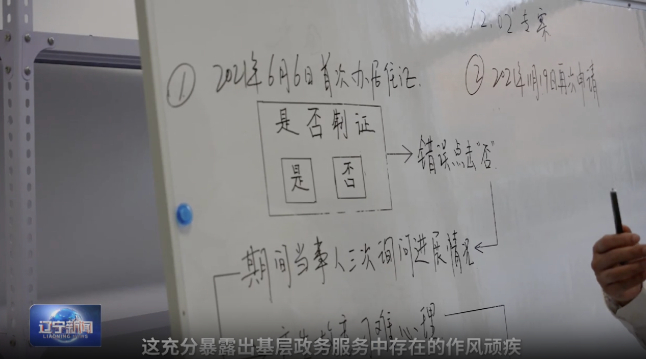 12.02"专案
① 2021年6月6日首次办居住证.
② 2021年11月19日再次申请
是否制证
是 否
错误点击"否"
期间当事人三次询问进展情况
辽宁新闻
LIAONING NEWS
这充分暴露出基层政务服务中存在的作风顽疾